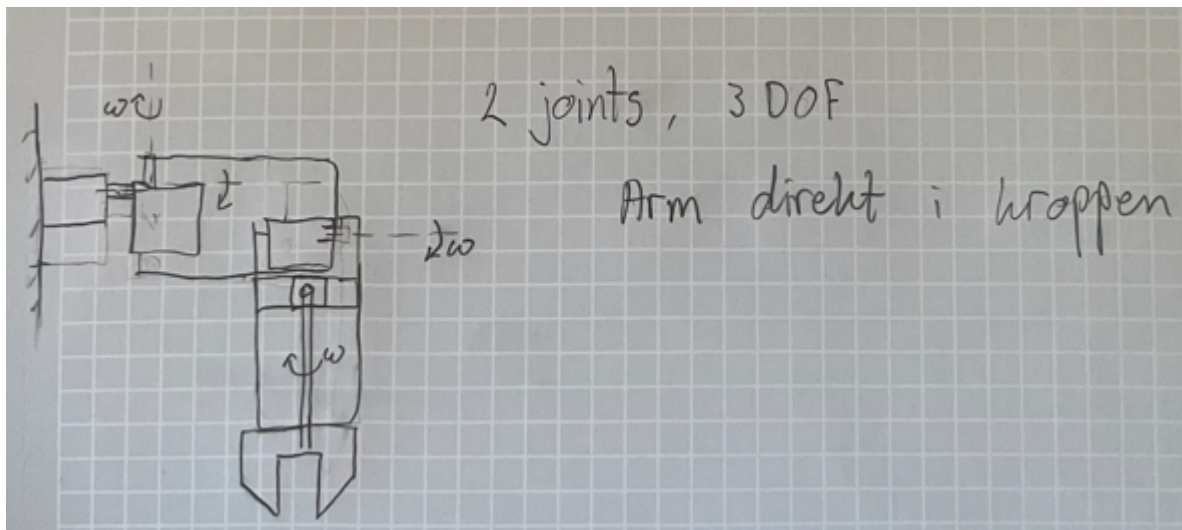 2 joints, 3 DOF
ω
Arm direkt i kroppen
ω
ω